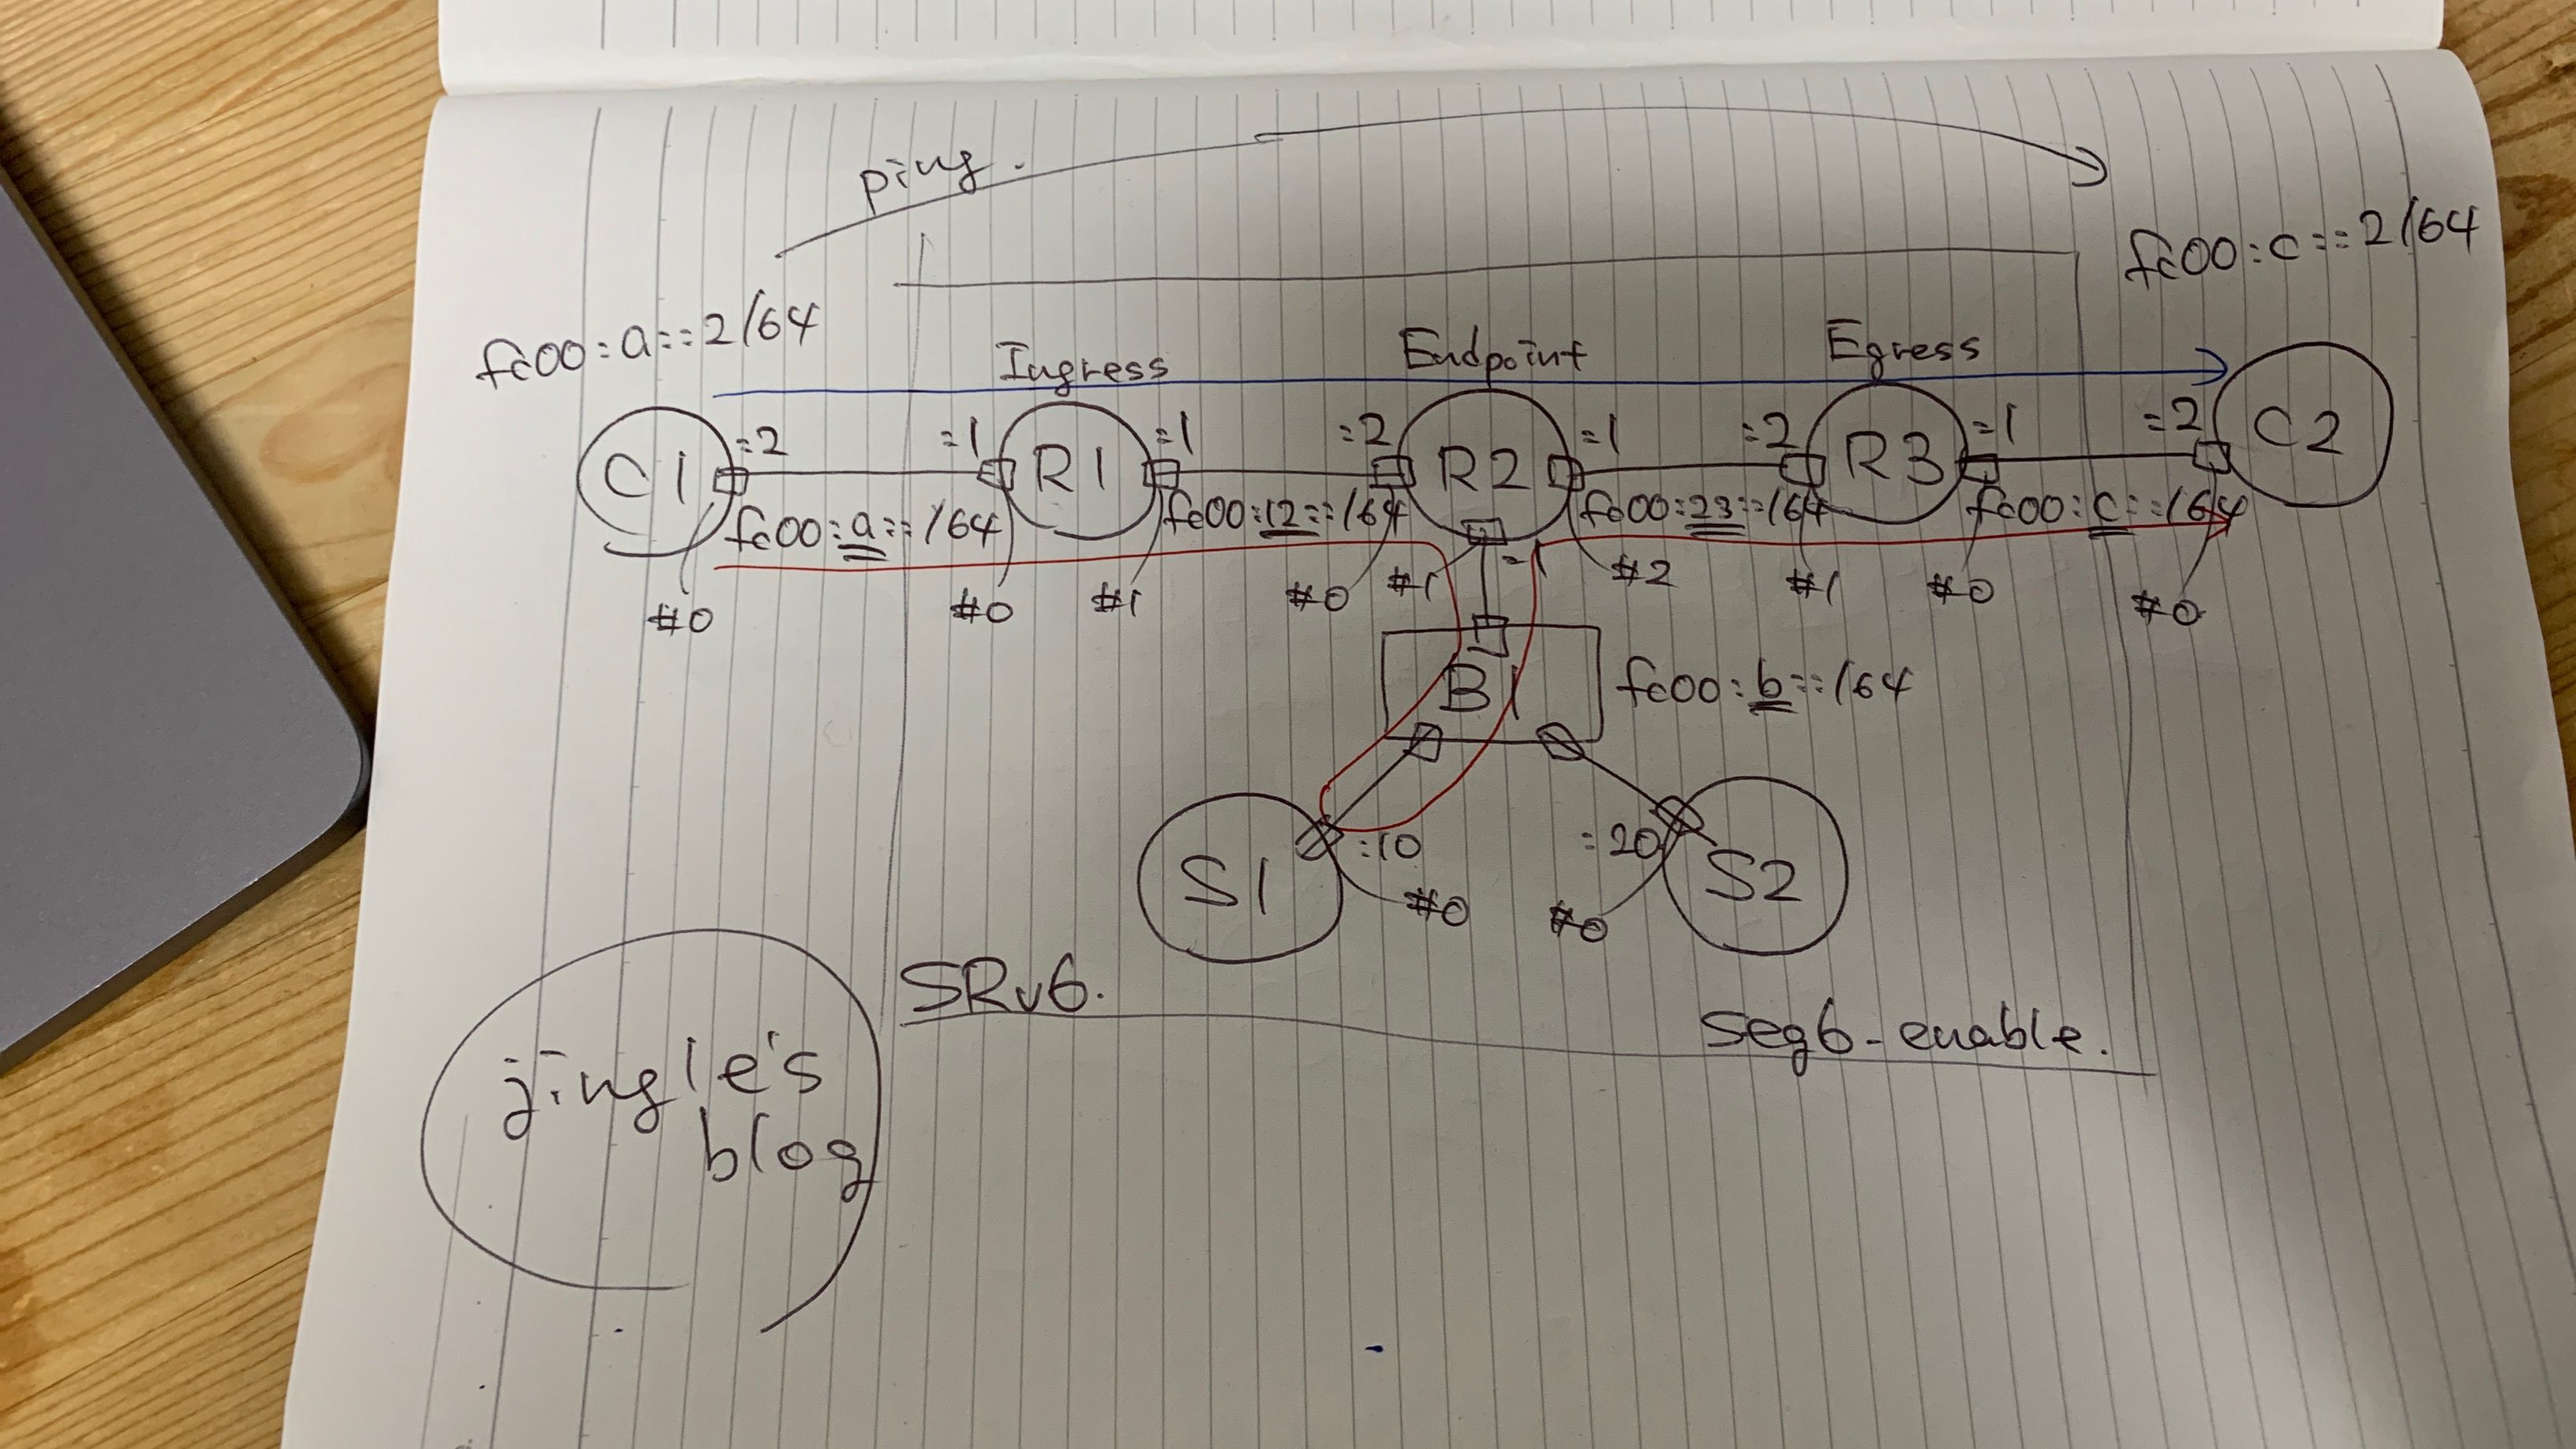 ping.
fc00:c::2/64
fc00:a::2/64
Ingress
Endpoint
Egress
C1
:2
:1
R1
:1
:2
R2
:1
:2
R3
:1
:2
C2
fc00:a::/64
fc00:12::/64
fc00:23::/64
fc00:c::/64
#0
#0
#1
#0
#1
:1
#2
#1
#0
#0
B1
fc00:b::/64
S1
:10
#0
:20
#0
S2
SRv6.
seg6-enable.
jingle's
blog